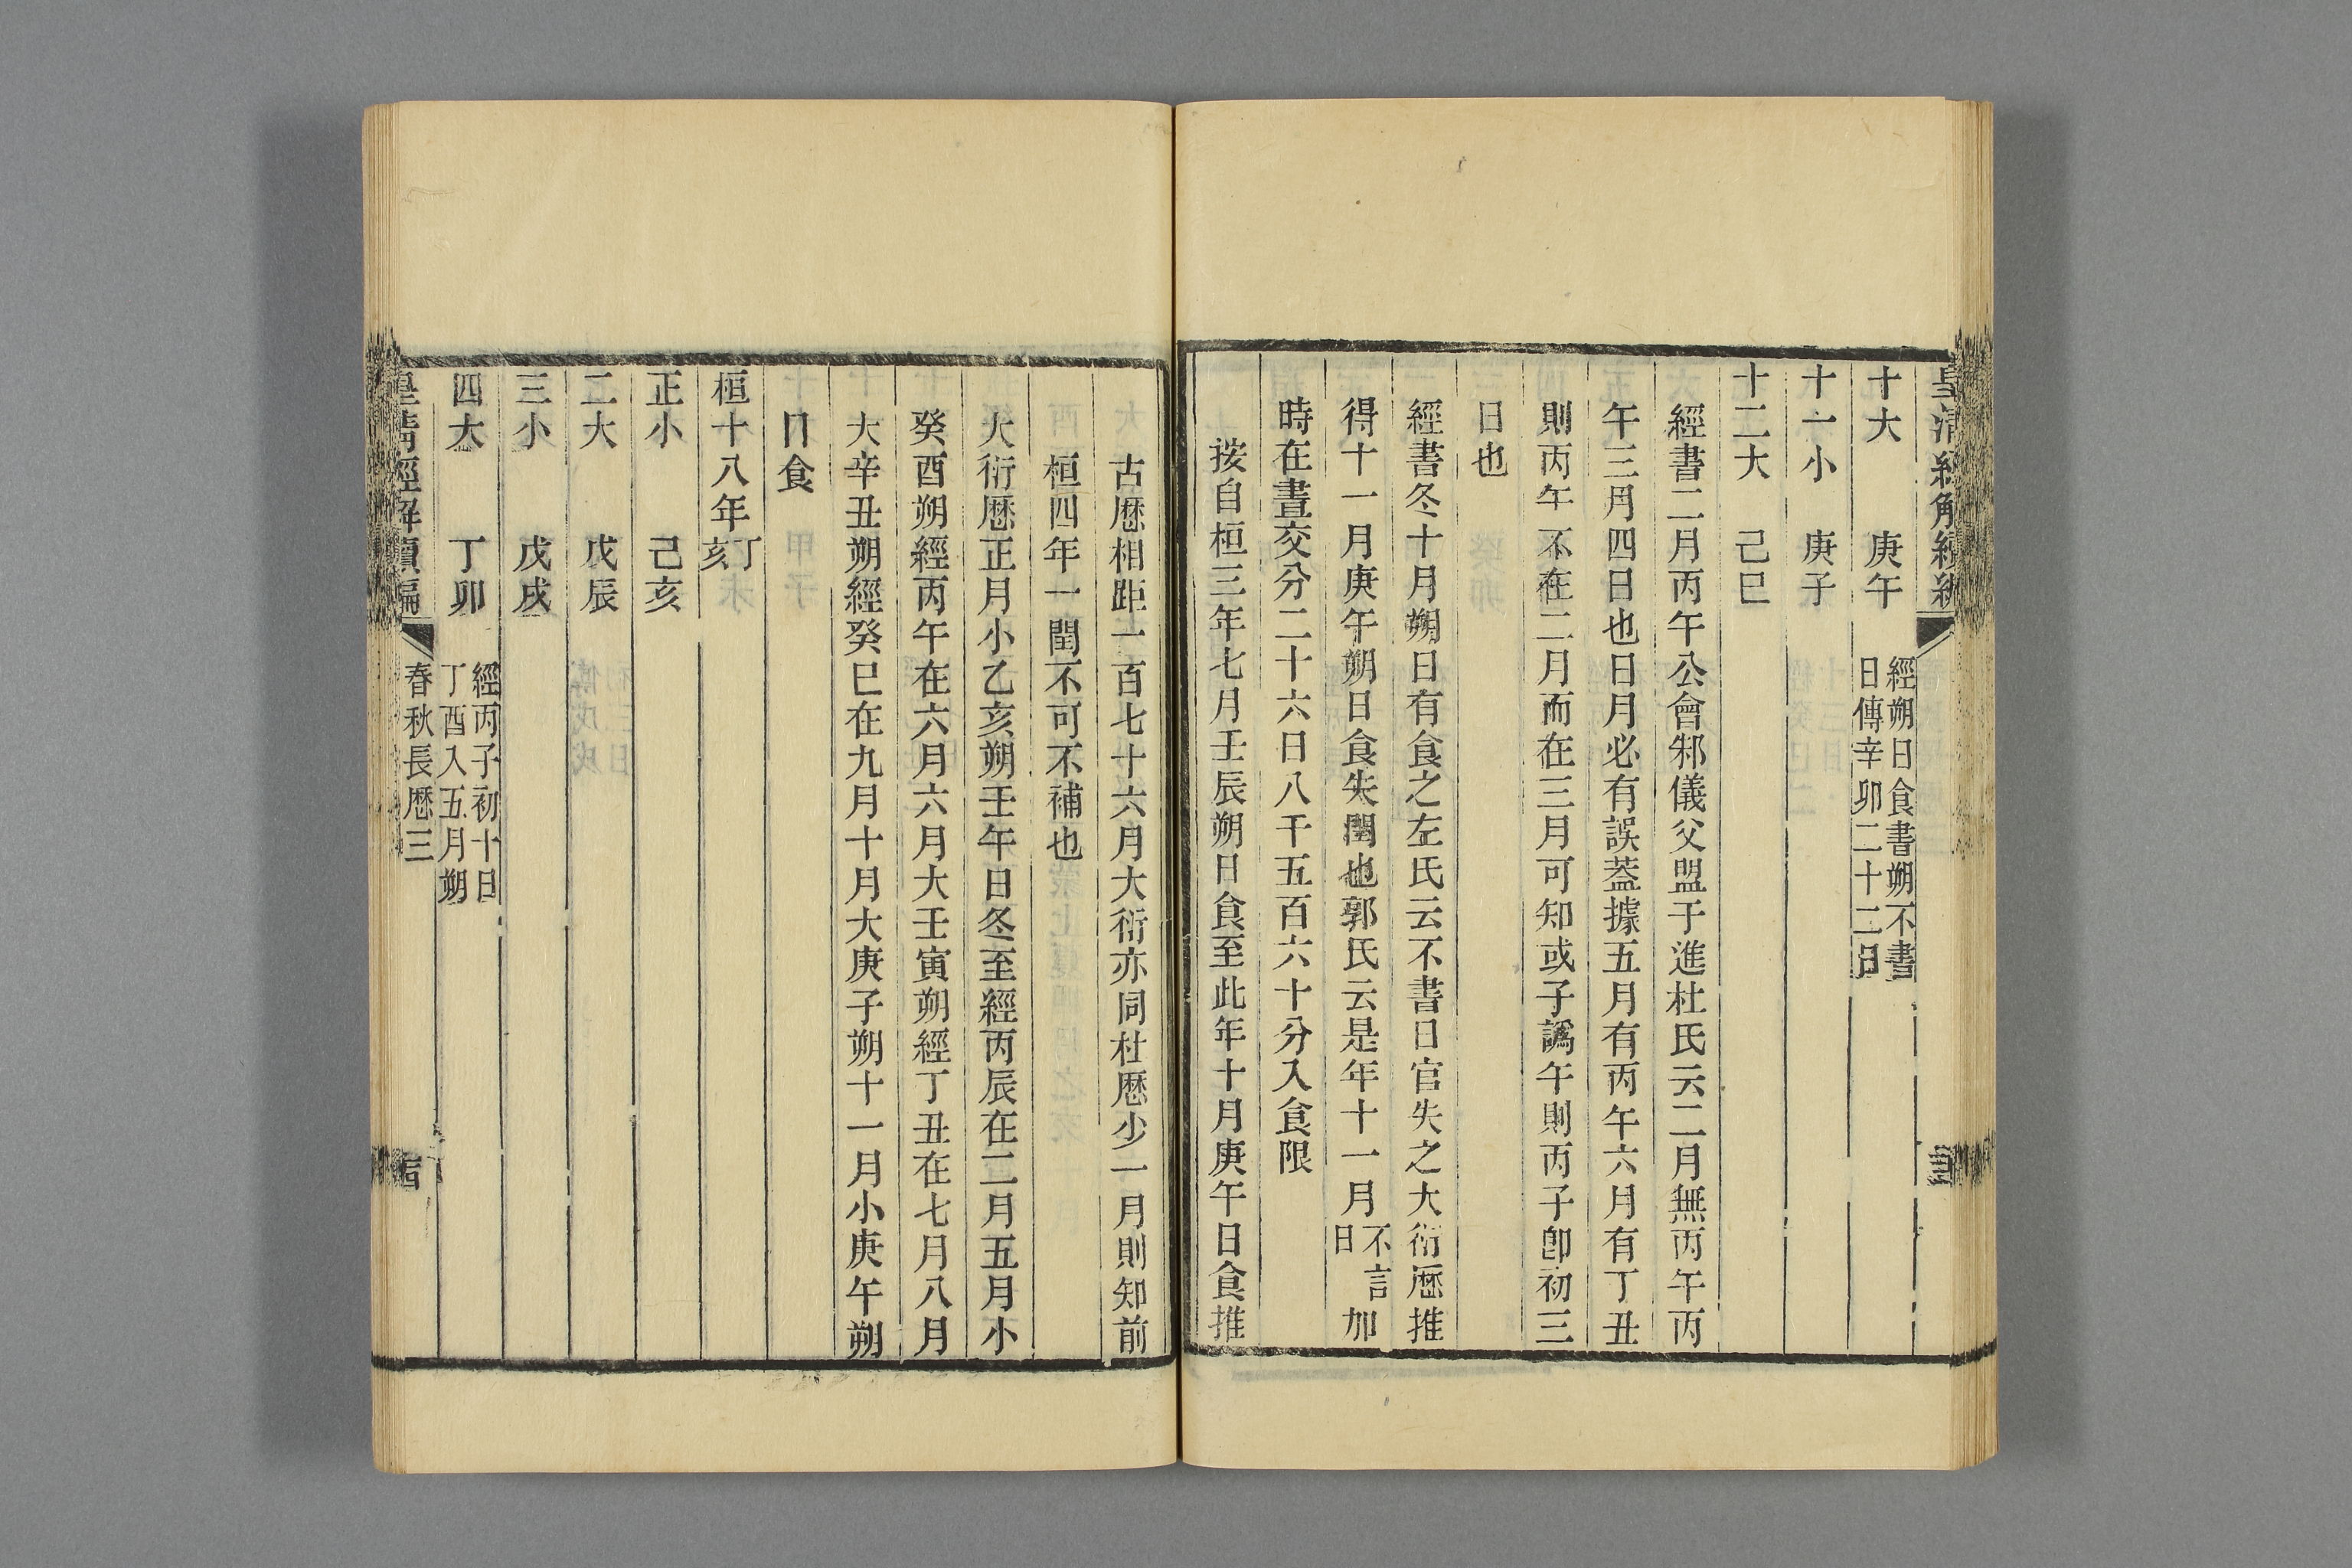 皇清經解續編
十大　庚午　經朔日食書朔不書
日傳辛卯二十二日
十一小　庚子
十二大　己巳
經書二月丙午公會邾儀父盟于進杜氏云二月無丙午丙
午三月四日也日月必有誤蓋據五月有丙午六月有丁丑
則丙午不在二月而在三月可知或子譌午則丙子卽初三
日也
經書冬十月朔日有食之左氏云不書日官失之大衍厤推
得十一月庚午朔日食失閏也郭氏云是年十一月不言日加
時在晝交分二十六日八千五百六十分入食限
按自桓三年七月壬辰朔日食至此年十月庚午日食推
古厤相距一百七十六月大衍亦同杜厤少一月則知前
桓四年一閏不可不補也
大衍厤正月小乙亥朔壬午日冬至經丙辰在二月五月小
癸酉朔經丙午在六月六月大壬寅朔經丁丑在七月八月
大辛丑朔經癸巳在九月十月大庚子朔十一月小庚午朔
日食
桓十八年丁亥
正小　己亥
二大　戊辰
三小　戊戌
四大　丁卯　經丙子初十日
丁酉入五月朔
皇清經解續編　春秋長厤三